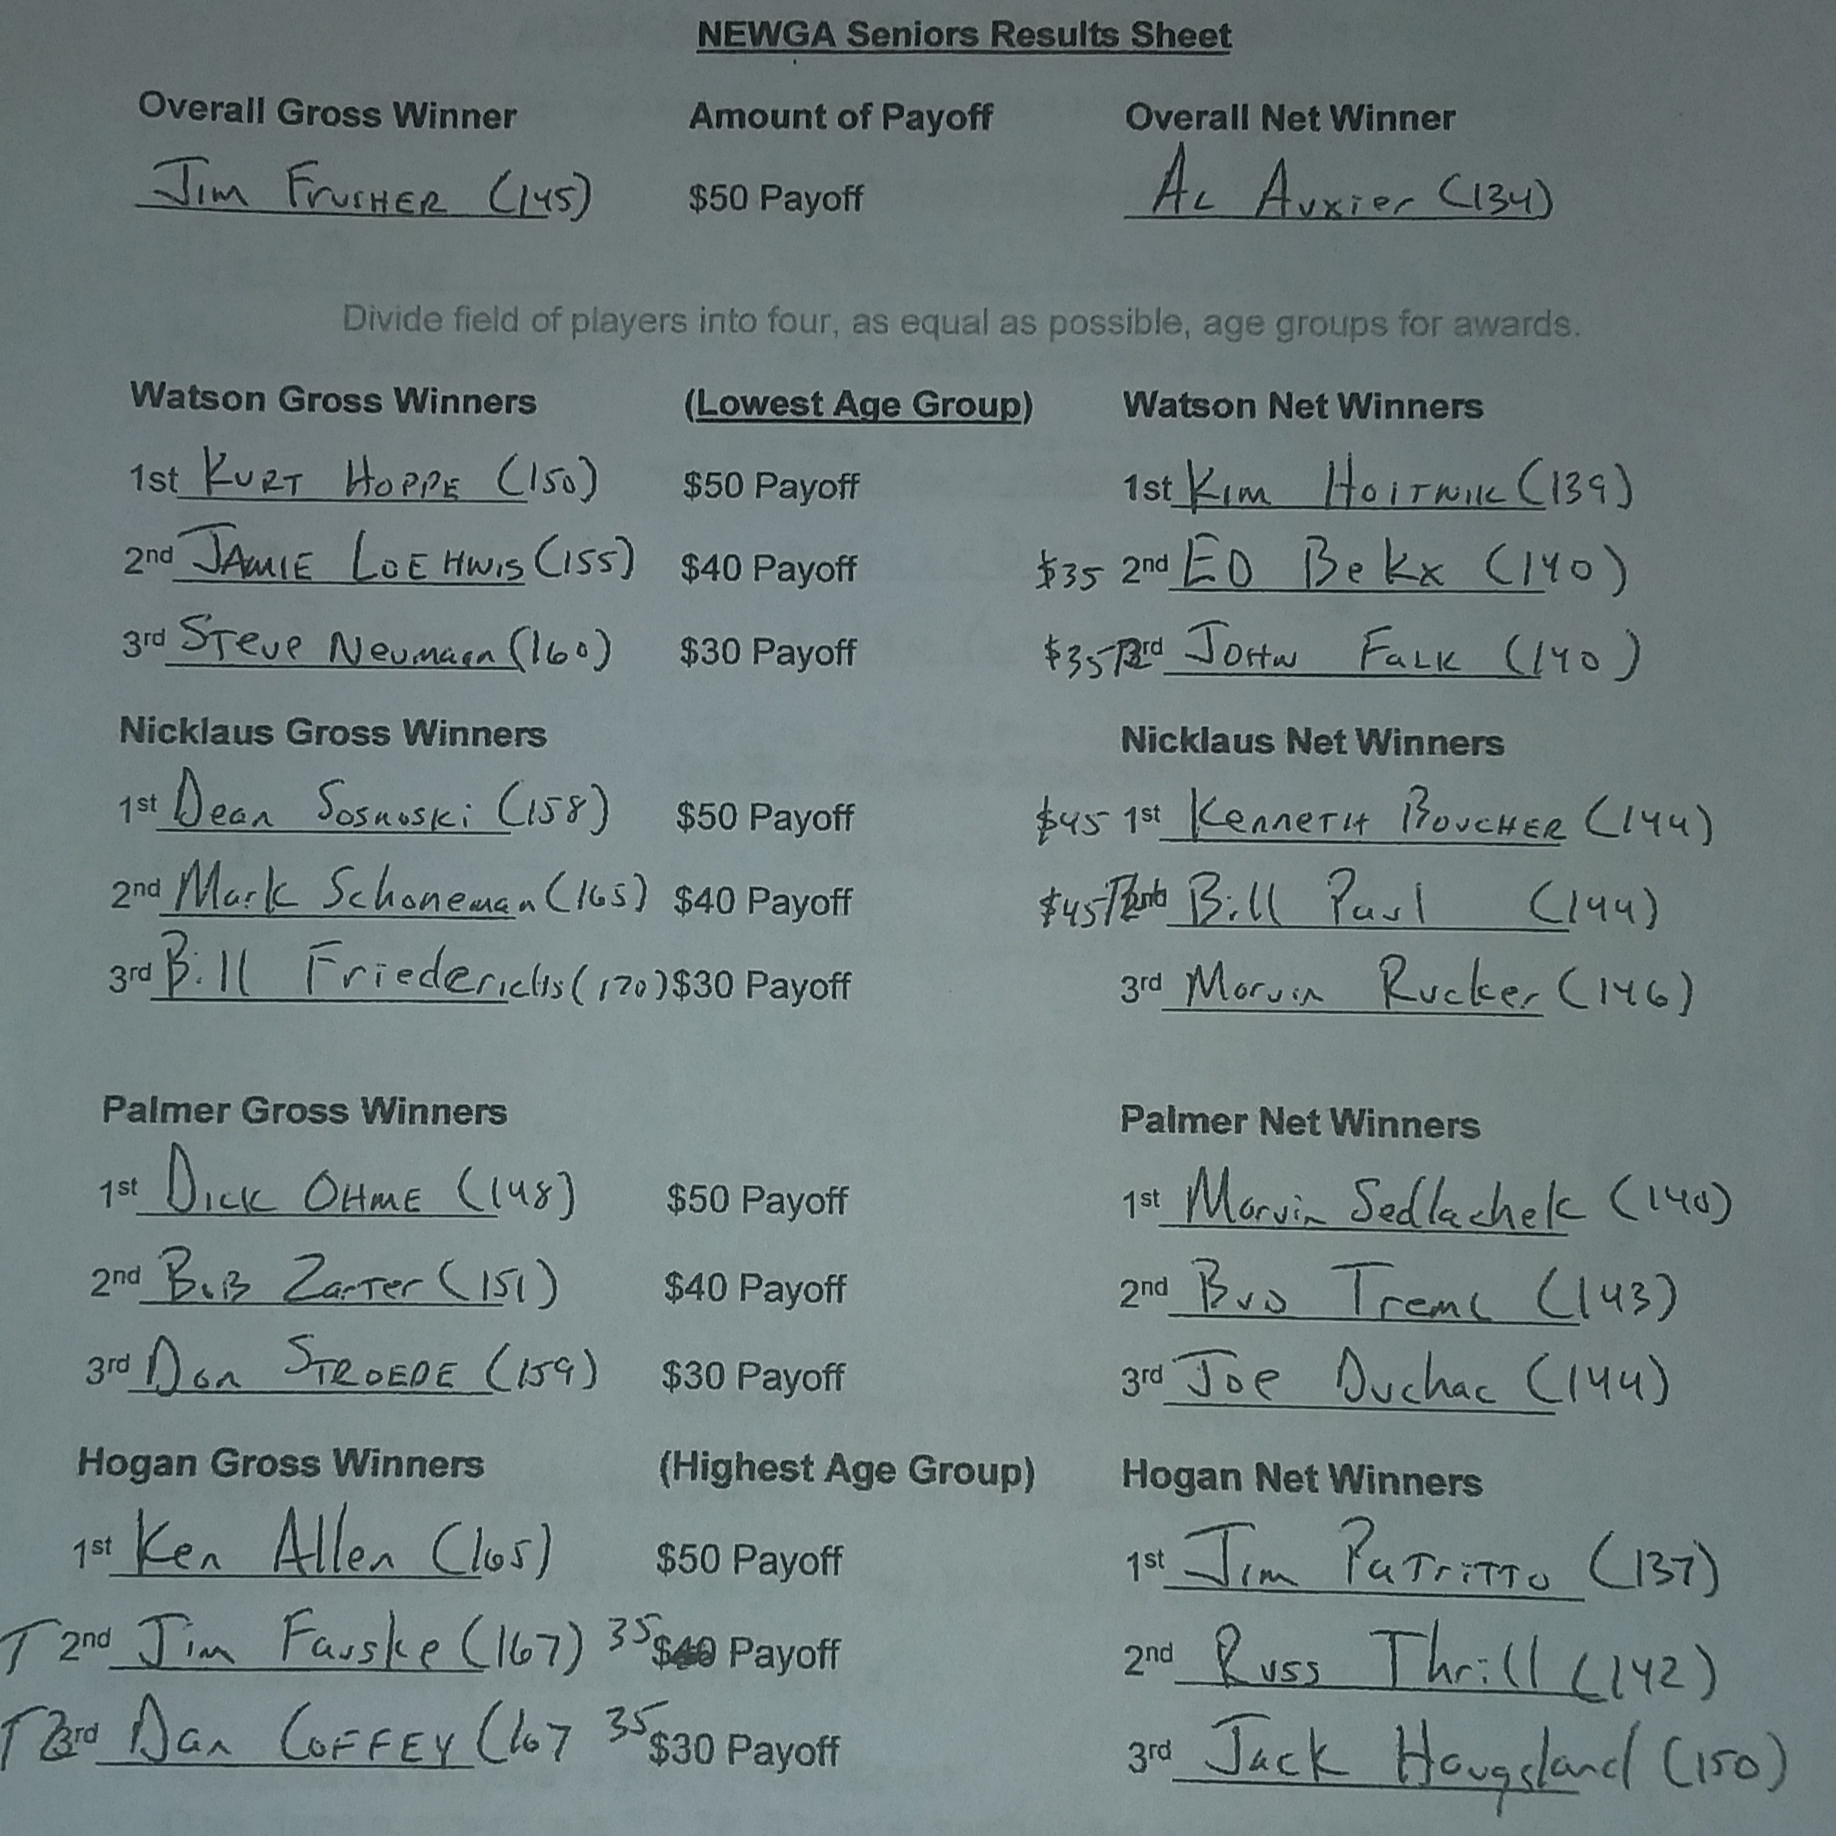 NEWGA Seniors Results Sheet
Overall Gross Winner Amount of Payoff Overall Net Winner
Jim FruSHER (145) $50 Payoff AL Auxier (134)
Divide field of players into four, as equal as possible, age groups for awards.
Watson Gross Winners (Lowest Age Group) Watson Net Winners
1st KURT HOPPE (150) $50 Payoff 1st Kim HoiTWiK (139)
2nd JAMIE LOEHWIS (155) $40 Payoff $35 2nd ED Bekx (140)
3rd STeve Neumann (160) $30 Payoff $35 T2 JOHN FALK (140)
Nicklaus Gross Winners Nicklaus Net Winners
1st Dean Sosnoski (158) $50 Payoff $45 1st KenneTH BOUCHER (144)
2nd Mark Schoneman (165) $40 Payoff $45 Bill Paul (144)
3rd Bill Friederichs (170) $30 Payoff 3rd Marvin Rucker (146)
Palmer Gross Winners Palmer Net Winners
1st DICK OHME (148) $50 Payoff 1st Marvin Sedlachek (140)
2nd BoB ZarTer (151) $40 Payoff 2nd BuD Treml (143)
3rd Don STROEDE (159) $30 Payoff 3rd Joe Duchac (144)
Hogan Gross Winners (Highest Age Group) Hogan Net Winners
1st Ken Allen (165) $50 Payoff 1st Jim PaTriTTo (137)
T 2nd Jim Fauske (167) 35 $40 Payoff 2nd Russ Thrill (142)
T 2 Dan COFFEY (167 35 $30 Payoff 3rd Jack Hougsland (150)